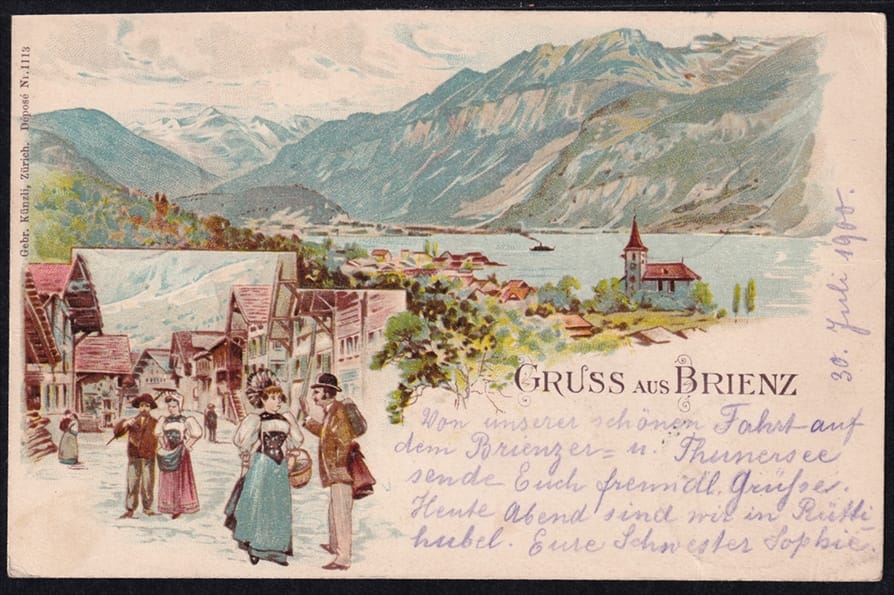 Gebr. Künzli, Zürich. Déposé Nr. 1113
GRUSS AUS BRIENZ
30. Juli 1900.
Von unserer schönen Fahrt auf
dem Brienzer= u. Thunersee
sende Euch freundl. Grüsse.
Heute Abend sind wir in Rütti
hubel. Eure Schwester Sophie.